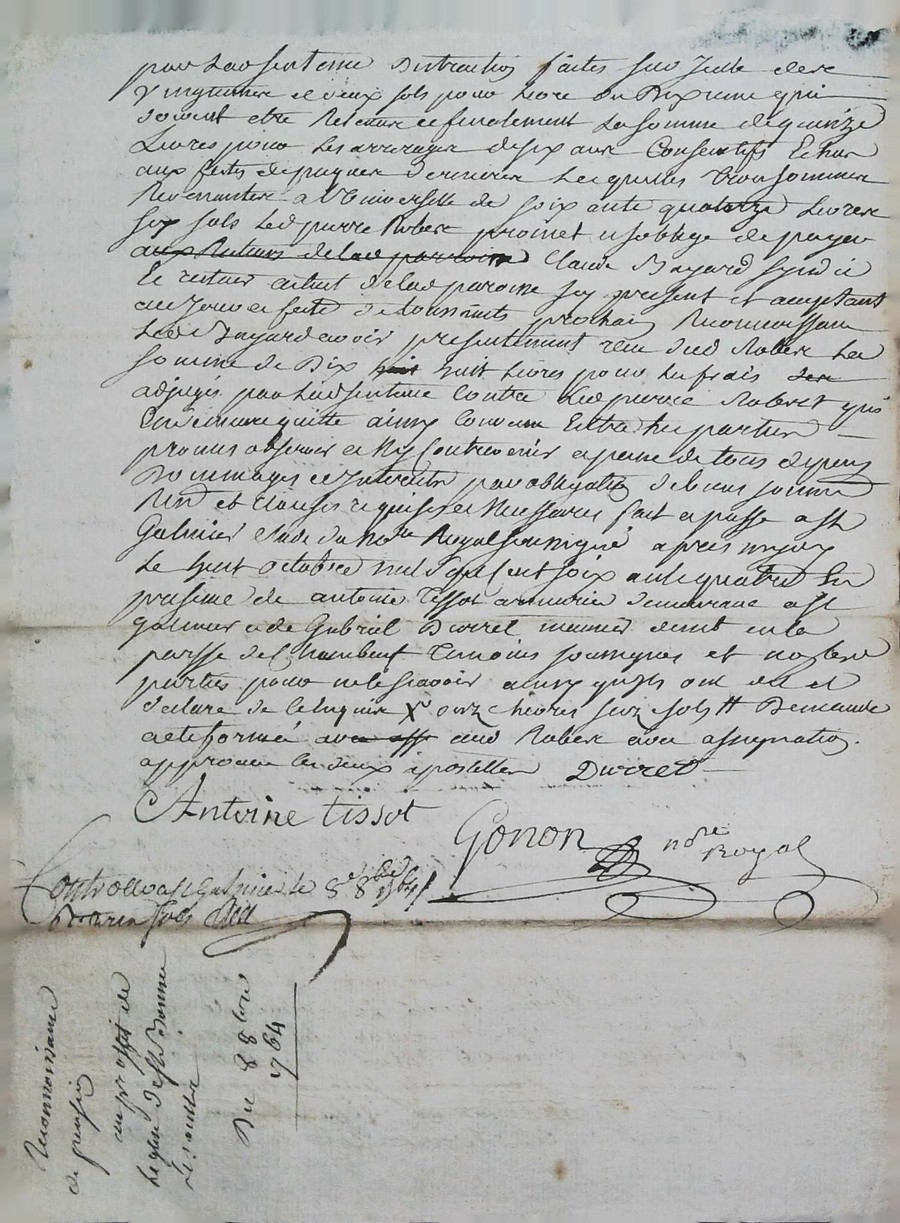 par ladsentence distraction faites sur icelle des
vingtieme et deux sols pour livre du dixieme qui
doivent etre retenus et finalement la somme de quinze
livres pour les arrerages de six ans consecutifs echus
aux festes de paques derniere lesquelles trois sommes
revenantes a l'universelle de soix ante quatorze livres
six sols led pierre Robert promet et soblige de payer
aux Recteurs de lad parroisse Claude Bayard syndic
de lad paroisse icy present et acceptant
au jour et feste de toussaints prochain Reconnoissant
led Bayard avoir presentement reçu dud Robert la
somme de Dix huit huit livres pour les frais des
adjugés par ladsentence contre led pierre Robert qui
en demeure quitte ainsy convenu entre les parties
promis observer et ny contrevenir a peine de tous depens
dommages et interets par obligation de biens soumis
Rend et clauses requises et necessaires fait et passé a st
Galmier etude du nore Royal soussigné apres midy
le huit octobre mil sept cent soix ante quatre En
presence de antoine Tissot armurier demeurant a st
galmier et de Gabriel Durret demt en la
parsse de Chambeuf temoins soussignés et non les
parties pour ne le scavoir ainsy quils ont dit et
declaré de ce enquis X onze heures
acte formée aud Robert avec assignation.
approuvé les deux apostilles Durret
Antoine tissot
Gonon nore Royal
Controllé a st Galmier le 8e 8bre 1764
Reconnoissance
de pension
au proffit de
St Bonnet
les oulles
Du 8 8bre
1764